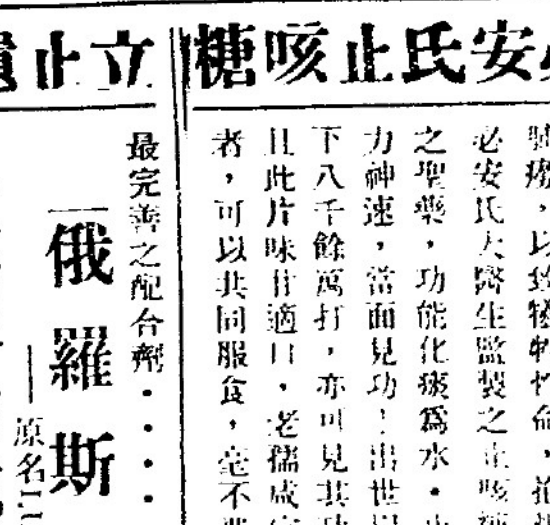 安氏止咳糖
以致犧牲性命，
必安氏大醫生監製之止咳
之聖藥，功能化痰為水。
力神速，當面見功！出世
下八千餘萬打，亦可見其功
且此片味甘適口，老孺咸宜
者，可以共同服食，毫不
立止
最完善之配合劑．．．．
俄羅斯
原名